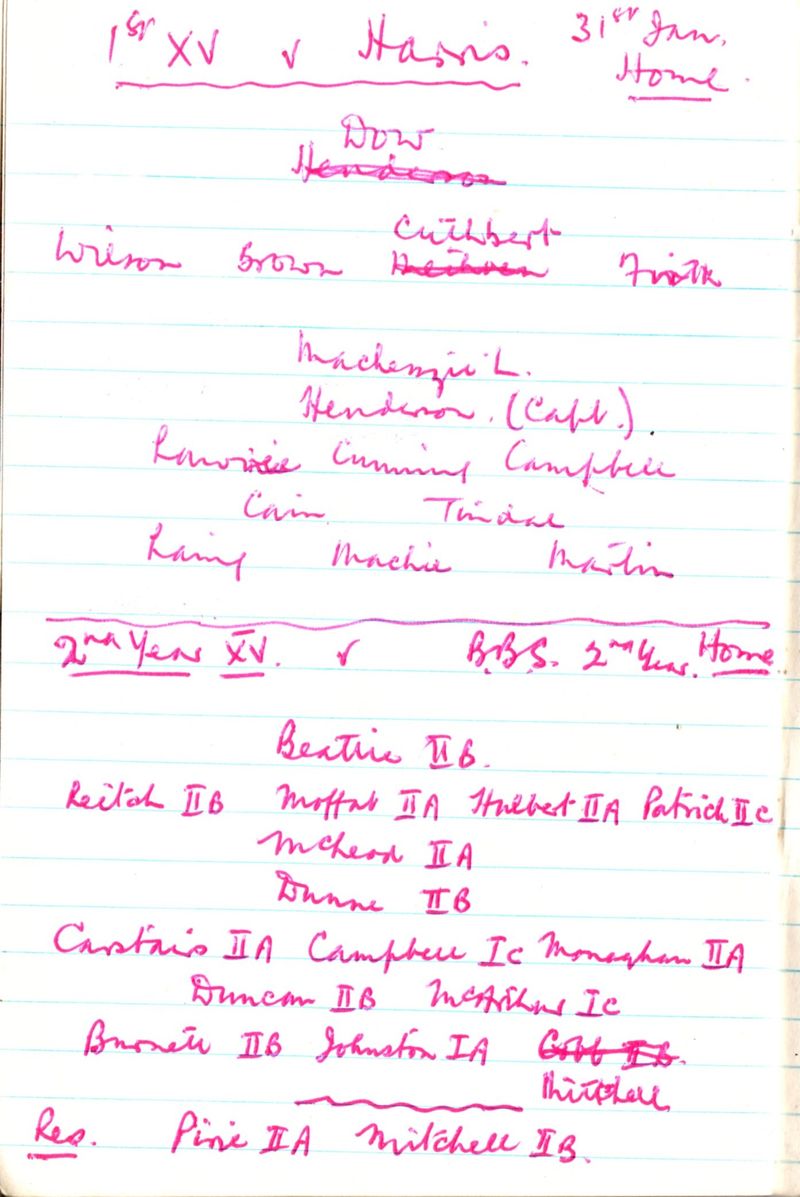 1st XV v Harris. 31st Jan.
Home.
Dow
Henderson
Cuthbert
Wilson Brown Firth
Mackenzie L.
Henderson. (Capt.).
Cumming Campbell
Cain Tindal
Laing Mackie Martin
2nd Year XV. v B.B.S. 2nd Year. Home
Beattie IIB.
Reitch IIB Moffat IIA Hulbert IIA Patrick IIC
McLeod IIA
Dunne IIB
Carstairs IIA Campbell IC Monaghan IIA
Duncan IIB McArthur IC
Burnett IIB Johnston IA Cobb IIB.
Mitchell
Res. Pirie IIA Mitchell IIB.